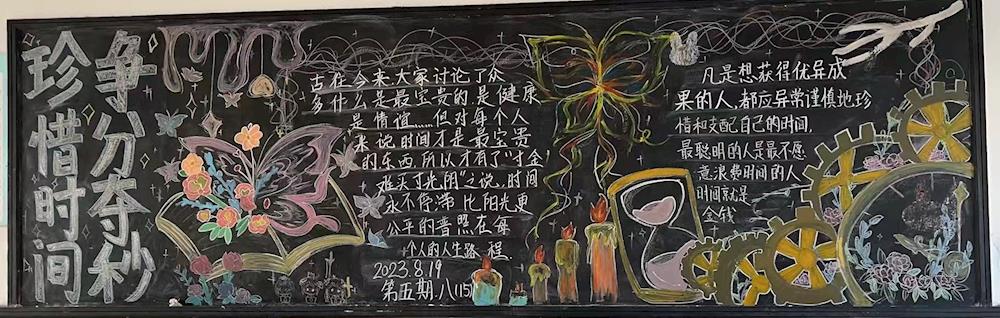 珍惜时间
争分夺秒
古在今来大家讨论了众
多什么是最宝贵的.是健康
是情谊......但对每个人
来说时间才是最宝贵
的东西,所以才有了"寸金
难买寸光阴"之说.时间
永不停滞 比阳光更
公平的普照在每
个人的人生路程
2023.8.19
第五期.八(15)
凡是想获得优异成
果的人,都应异常谨慎地珍
惜和支配自己的时间,
最聪明的人是最不愿
意浪费时间的人
时间就是
金钱